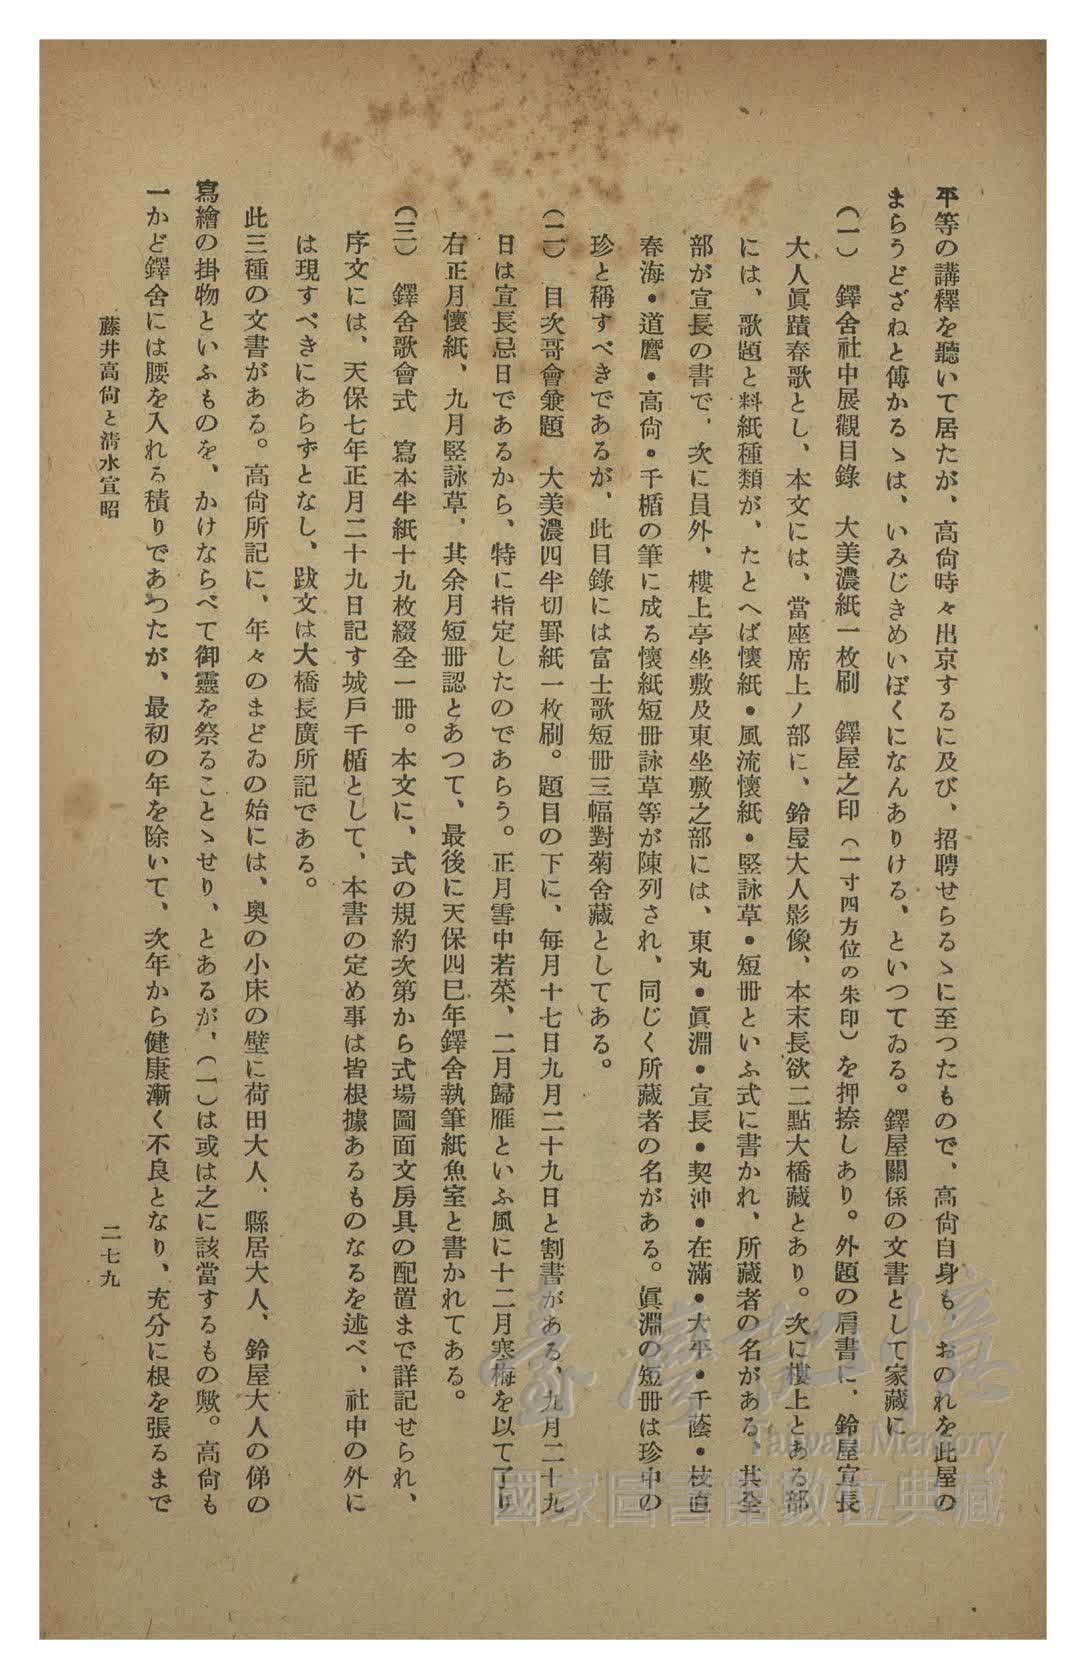 平等の講釋を聽いて居たが、高尙時々出京するに及び、招聘せらるゝに至つたもので、高尙自身も、おのれを此屋の
まらうどざねと傅かるゝは、いみじきめいぼくになんありける、といつてゐる。鐸屋關係の文書として家藏に
(一) 鐸舍社中展觀目錄 大美濃紙一枚刷 鐸屋之印(一寸四方位の朱印)を押捺しあり。外題の肩書に、鈴屋宣長
大人眞蹟春歌とし、本文には、當座席上ノ部に、鈴屋大人影像、本末長欲二點大橋藏とあり。次に樓上とある部
には、歌題と料紙種類が、たとへば懷紙・風流懷紙・竪詠草・短冊といふ式に書かれ、所藏者の名がある、其全
部が宣長の書で、次に員外、樓上亭坐敷及東坐敷之部には、東丸・眞淵・宣長・契沖・在滿・大平・千蔭・枝直
春海・道麿・高尙・千楯の筆に成る懷紙短冊詠草等が陳列され、同じく所藏者の名がある。眞淵の短冊は珍中の
珍と稱すべきであるが、此目錄には富士歌短冊三幅對菊舍藏としてある。
(二) 目次哥會兼題 大美濃四半切罫紙一枚刷。題目の下に、每月十七日九月二十九日と割書がある、九月二十九
日は宣長忌日であるから、特に指定したのであらう。正月雪中若菜、二月歸雁といふ風に十二月寒梅を以て了り
右正月懷紙、九月竪詠草、其余月短冊認とあつて、最後に天保四巳年鐸舍執筆紙魚室と書かれてある。
(三) 鐸舍歌會式 寫本半紙十九枚綴全一冊。本文に、式の規約次第から式場圖面文房具の配置まで詳記せられ、
序文には、天保七年正月二十九日記す城戶千楯として、本書の定め事は皆根據あるものなるを述べ、社中の外に
は現すべきにあらずとなし、跋文は大橋長廣所記である。
此三種の文書がある。高尙所記に、年々のまどゐの始には、奧の小床の壁に荷田大人、縣居大人、鈴屋大人の俤の
寫繪の掛物といふものを、かけならべて御靈を祭ることゝせり、とあるが、(一)は或は之に該當するもの歟。高尙も
一かど鐸舍には腰を入れる積りであつたが、最初の年を除いて、次年から健康漸く不良となり、充分に根を張るまで
藤井高尙と淸水宣昭
二七九
臺灣記憶
Taiwan Memory
國家圖書館數位典藏